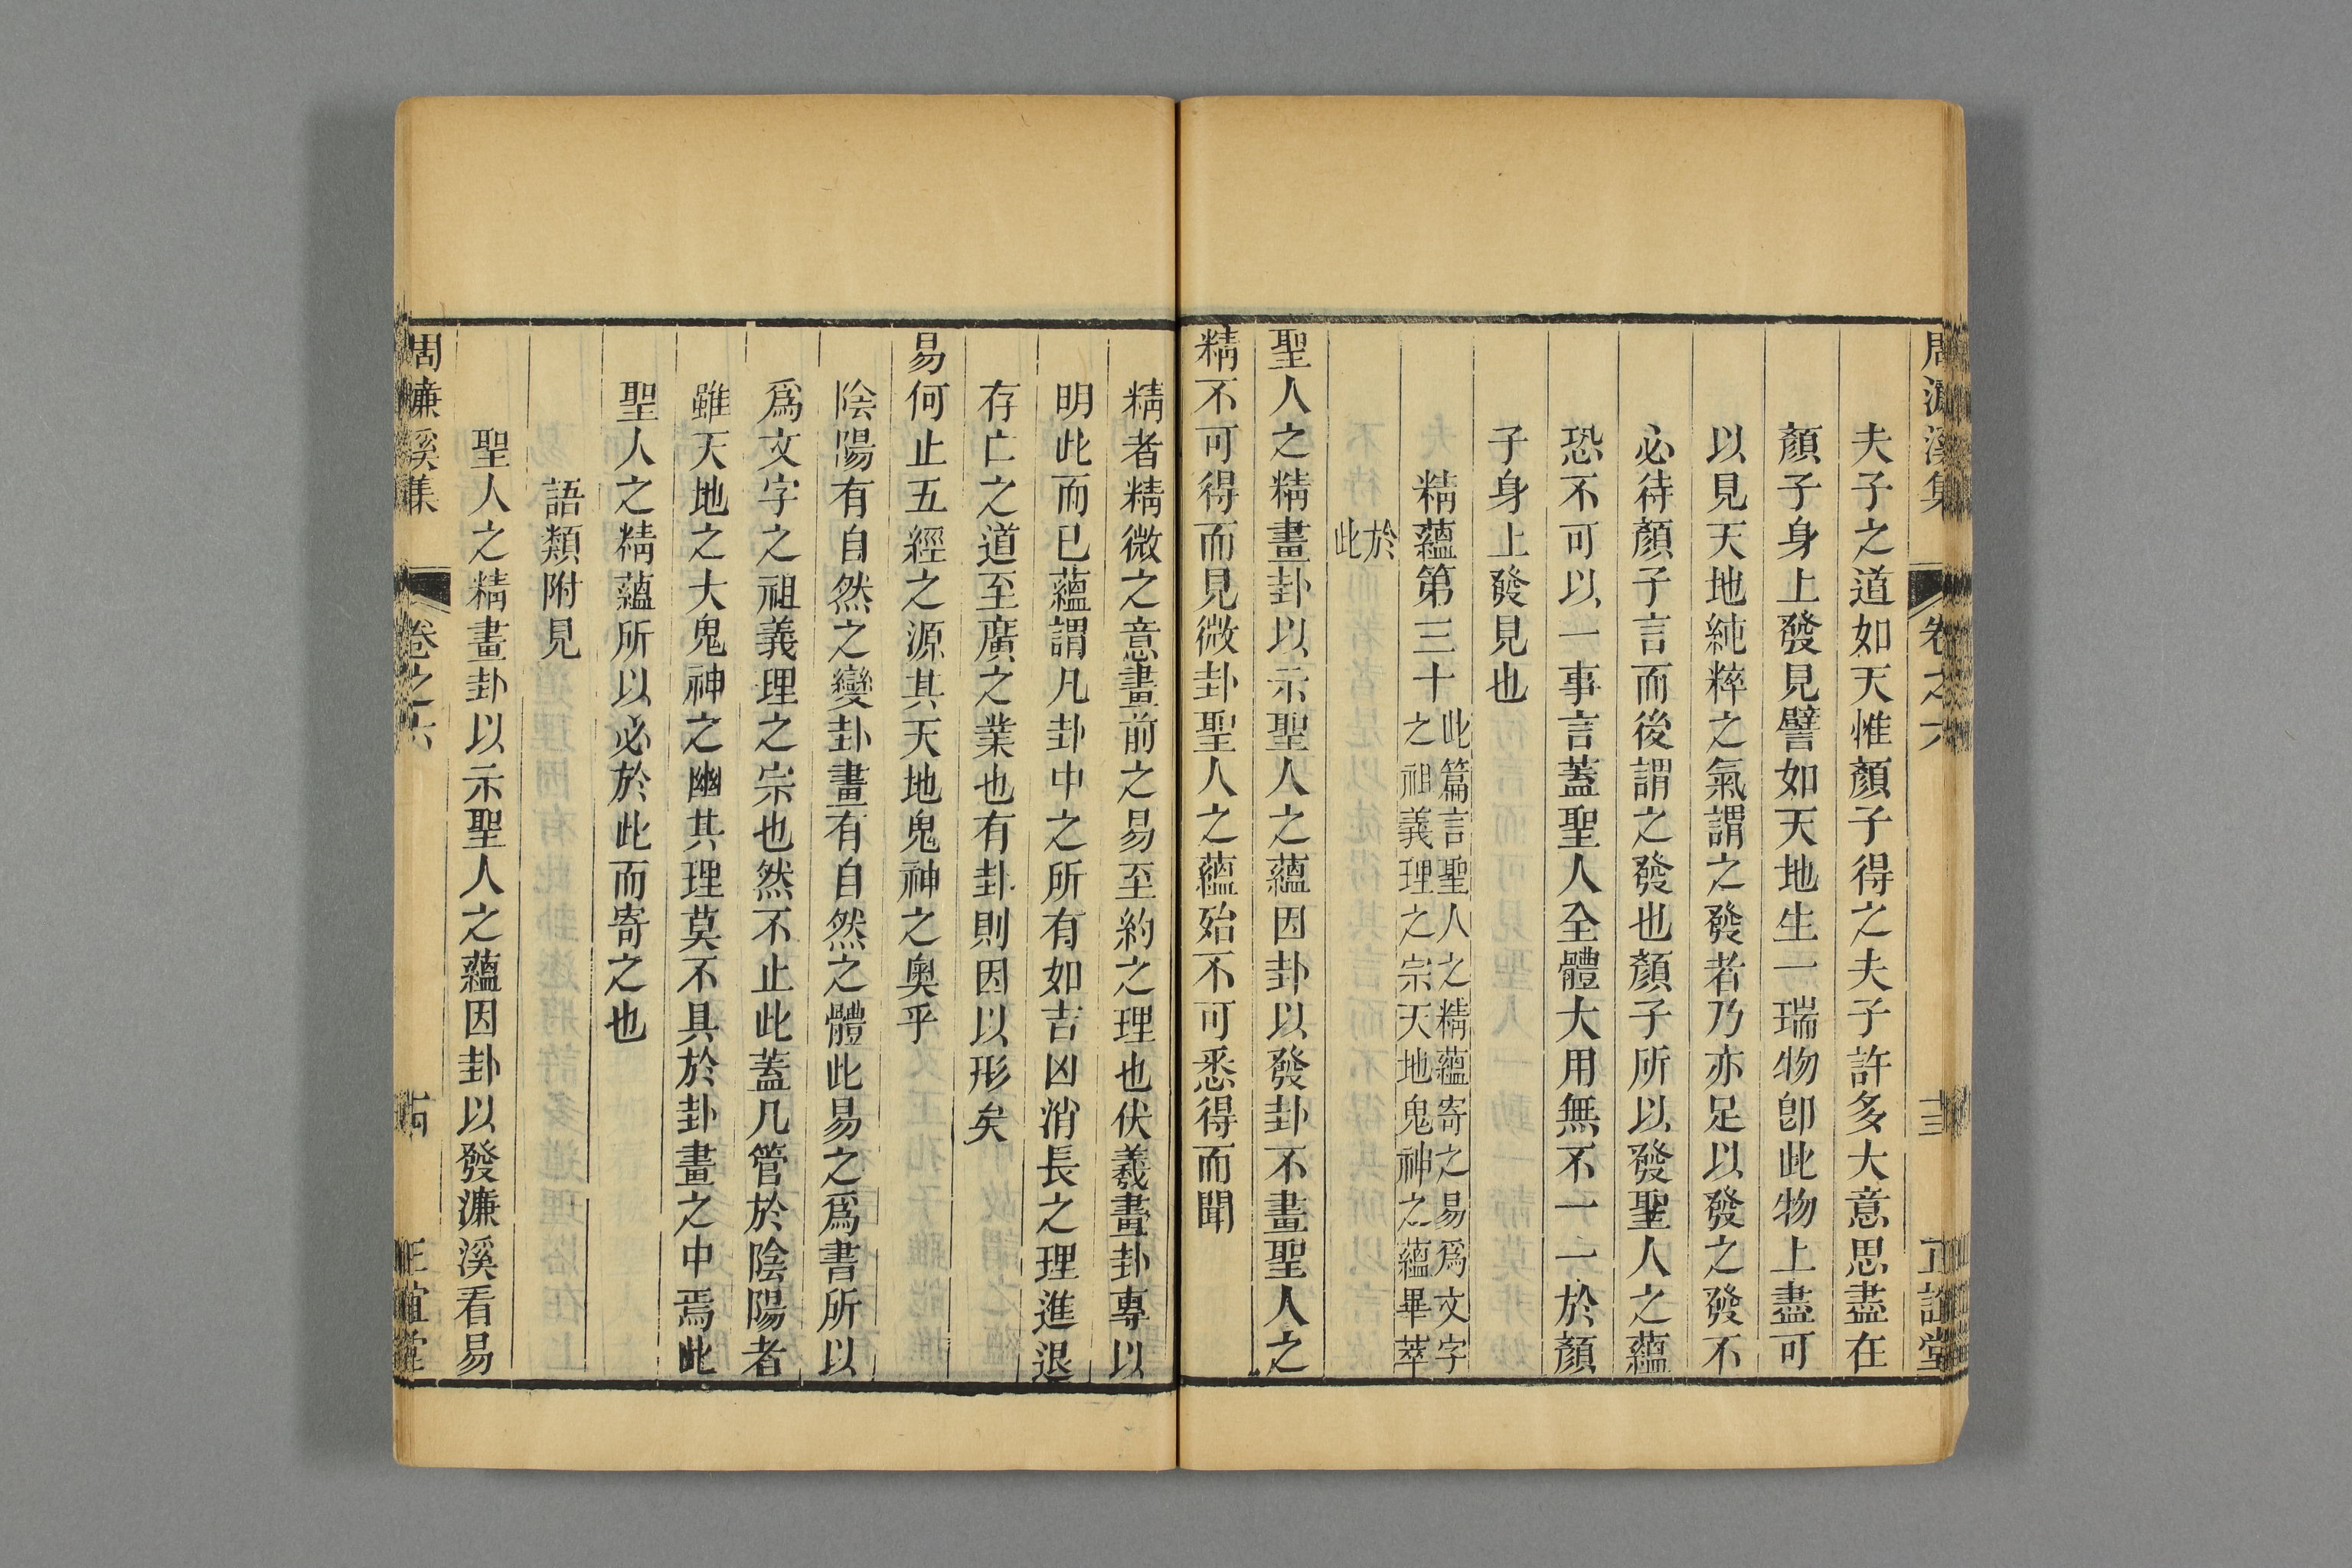 周濂溪集 卷之六 十三 正誼堂
夫子之道如天惟顏子得之夫子許多大意思盡在
顏子身上發見譬如天地生一瑞物卽此物上盡可
以見天地純粹之氣謂之發者乃亦足以發之發不
必待顏子言而後謂之發也顏子所以發聖人之蘊
恐不可以一事言蓋聖人全體大用無不一一於顏
子身上發見也
精蘊第三十
此篇言聖人之精蘊寄之易爲文字
之祖義理之宗天地鬼神之蘊畢萃
於
此
聖人之精畫卦以示聖人之蘊因卦以發卦不畫聖人之
精不可得而見微卦聖人之蘊殆不可悉得而聞
精者精微之意畫前之易至約之理也伏羲畫卦專以
明此而已蘊謂凡卦中之所有如吉凶消長之理進退
存亡之道至廣之業也有卦則因以形矣
易何止五經之源其天地鬼神之奧乎
陰陽有自然之變卦畫有自然之體此易之爲書所以
爲文字之祖義理之宗也然不止此蓋凡管於陰陽者
雖天地之大鬼神之幽其理莫不具於卦畫之中焉此
聖人之精蘊所以必於此而寄之也
語類附見
聖人之精畫卦以示聖人之蘊因卦以發濂溪看易
周濂溪集 卷之六 十四 正誼堂